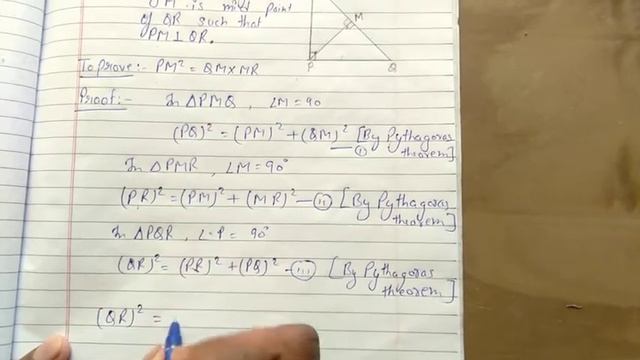 M is mid point
of QR such that
PM ⊥ QR.
M
P
Q
To prove :- PM² = QM × MR
Proof :- In △PMQ, ∠M = 90
(PQ)² = (PM)² + (QM)² — (i) [By Pythagoras theorem]
In △PMR, ∠M = 90°
(PR)² = (PM)² + (MR)² — (ii) [By Pythagoras theorem]
In △PQR, ∠P = 90°
(QR)² = (PR)² + (PQ)² — (iii) [By Pythagoras theorem]
(QR)² =